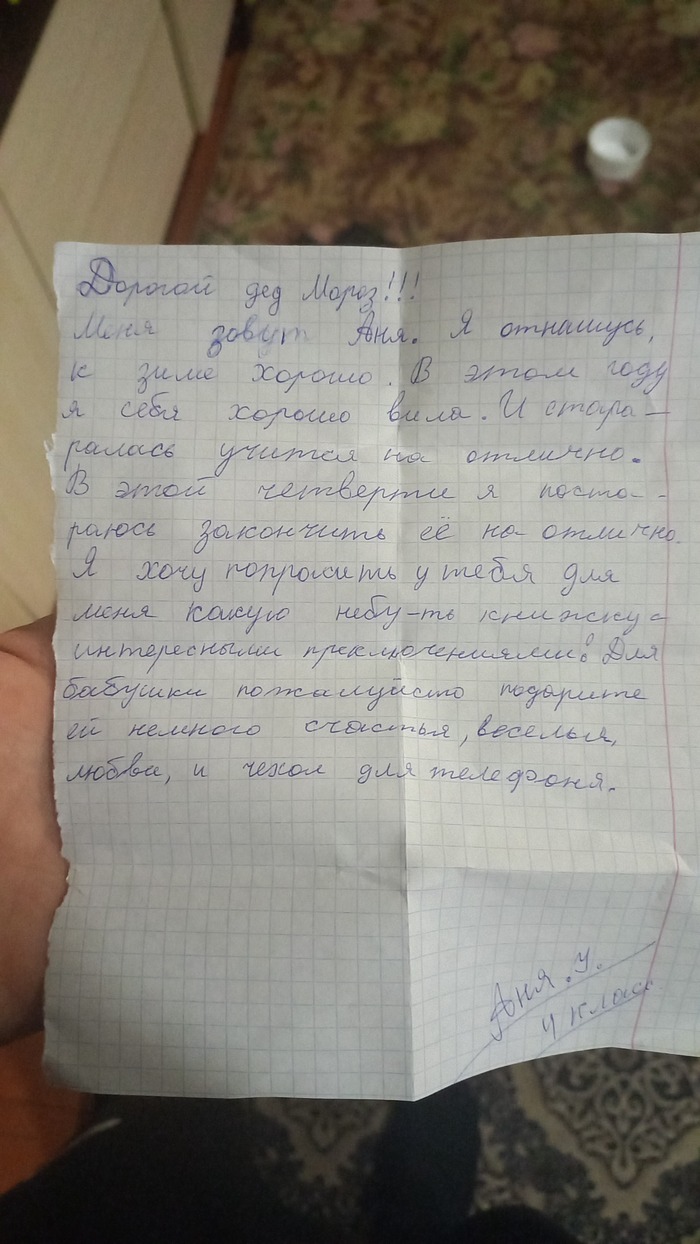 Дорогой дед Мороз!!!
Меня зовут Аня. Я отнашусь,
к зиме хорошо. В этом году
я себя хорошо вила. И стара-
ралась учится на отлично.
В этой четверти я поста-
раюсь закончить её на отлично.
Я хочу попросить у тебя для
меня какую небу-ть книжку с
интересными преключениями! Для
бабушки пожалуйсто подарите
ей немного счастья, веселья,
любви, и чехол для телефоня.
Аня. У.
4 клас